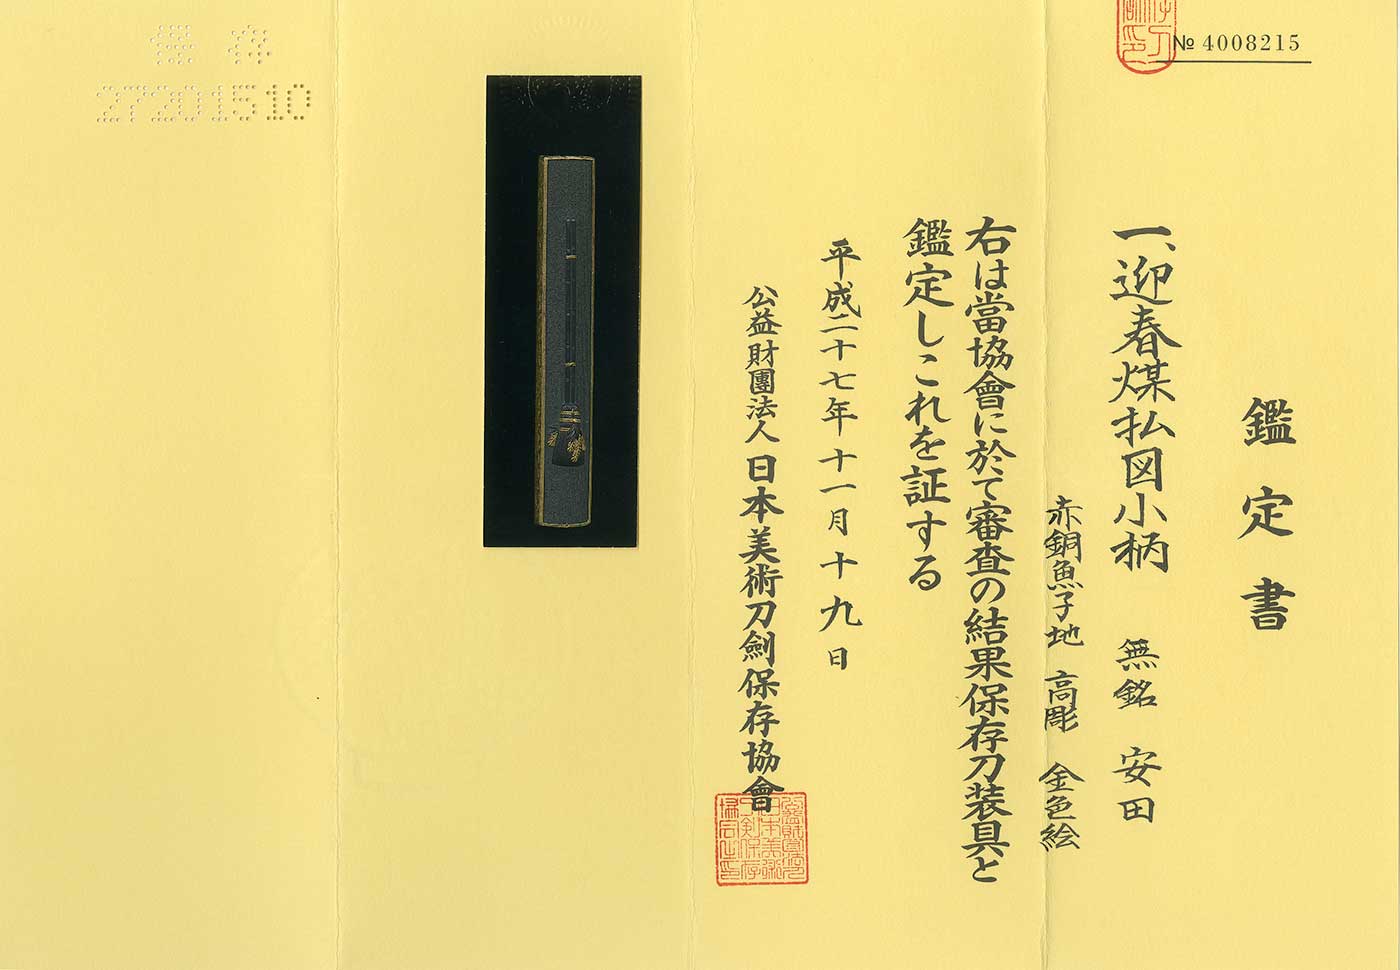 № 4008215
鑑定書
一、迎春煤払図小柄 無銘 安田
赤銅魚子地 高彫 金色絵
右は當協會に於て審査の結果保存刀装具と
鑑定しこれを証する
平成二十七年十一月十九日
公益財團法人日本美術刀剣保存協會
保存
27201510